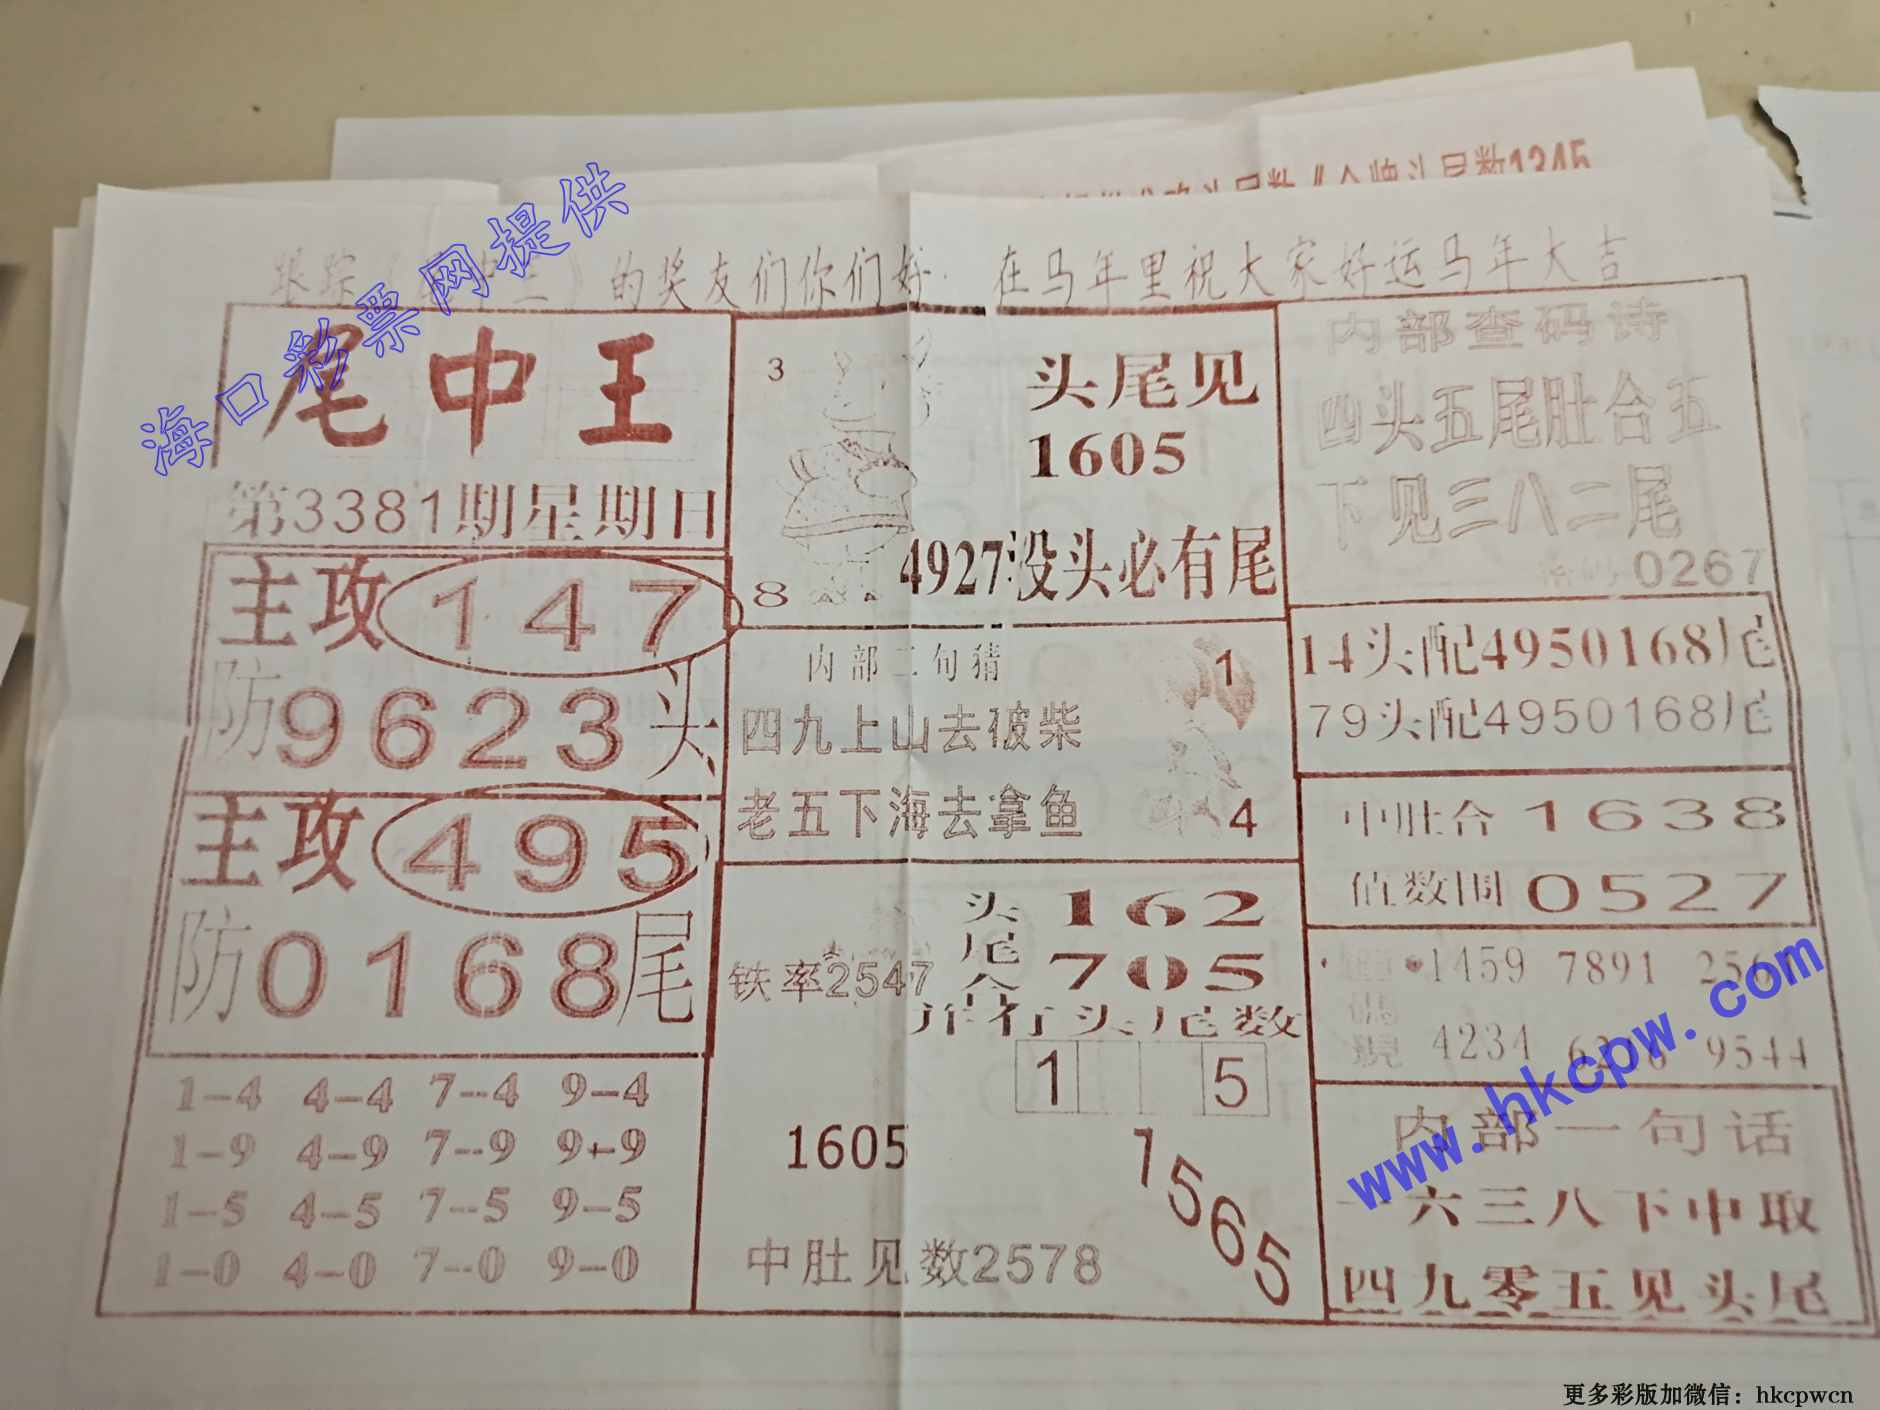 跟踪《尾中王》的奖友们你们好 在马年里祝大家好运马年大吉
海口彩票网提供
尾中王
第3381期星期日
主攻 147
防9623头
主攻 495
防0168尾
1-4 4-4 7-4 9-4
1-9 4-9 7-9 9-9
1-5 4-5 7-5 9-5
1-0 4-0 7-0 9-0
3
头尾见
1605
8
4927没头必有尾
内部二句猜
四九上山去破柴
老五下海去拿鱼
1
4
头 162
尾
合 705
铁率2547
并行头尾数
1 5
1605
1565
中肚见数2578
内部查码诗
四头五尾肚合五
下见三八二尾
0267
14头配4950168尾
79头配4950168尾
中肚合 1638
值数围 0527
1459 7891
4234 9544
内部一句话
一六三八下中取
四九零五见头尾
www.hkcpw.com
更多彩版加微信：hkcpwcn